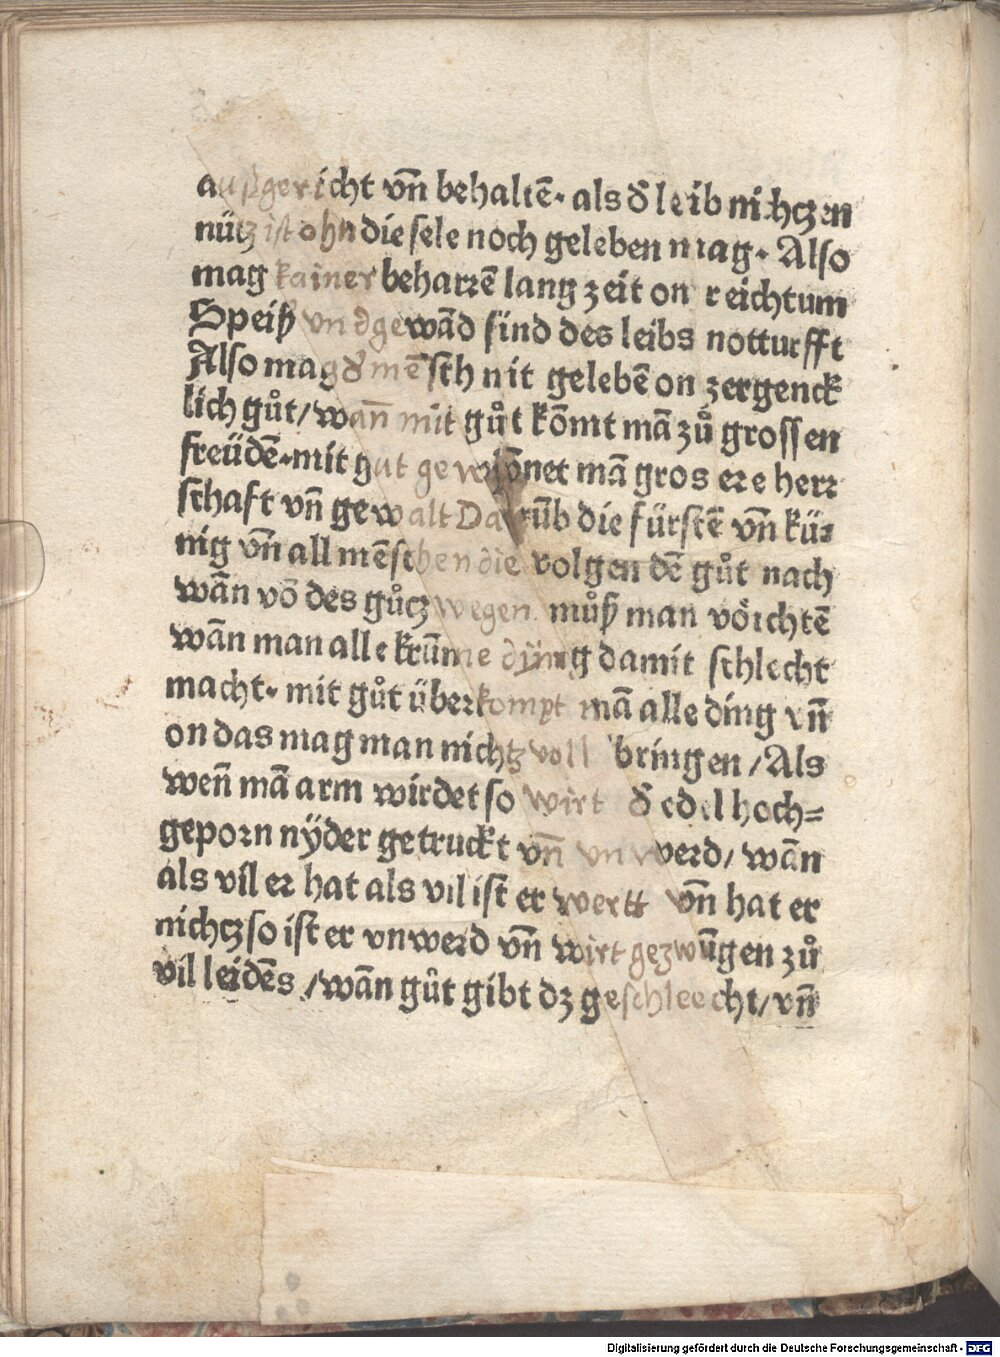 außgericht vn̄ behaltē. als d̄ leib nichczen
nücz ist ohn die sele noch geleben mag. Also
mag kainer beharrē lang zeit on reichtum
Speiß vnd gewād sind des leibs notturfft
Also mag d̄ mēsch nit gelebē on zergenck
lich gůt/ wann̄ mit gůt kōmt mā zů grossen
freüdē. mit gut gewiōnet mā grosere herr
schaft vn̄ gewalt Darūb die fürstē vn̄ kü⸗
nig vn̄ all mēschen die volgen dē gůt nach
wān vō des gůcz wegen můß man vörchtē
wān man alle krūme dÿng damit schlecht
macht. mit gůt überkompt mā alle ding vn̄
on das mag man nichtz vollbringen /Als
wen̄ mā arm wirdet so wirt d̄ edel hoch⸗
geporn nÿder getruckt vn̄ vnwerd/ wān
als vil er hat als vil ist er wertt vn̄ hat er
nichcz so ist er vnwerd vn̄ wirt gezwūgen zů
vil leidēs /wān gůt gibt dz geschleecht/ vn̄
Digitalisierung gefördert durch die Deutsche Forschungsgemeinschaft - DFG